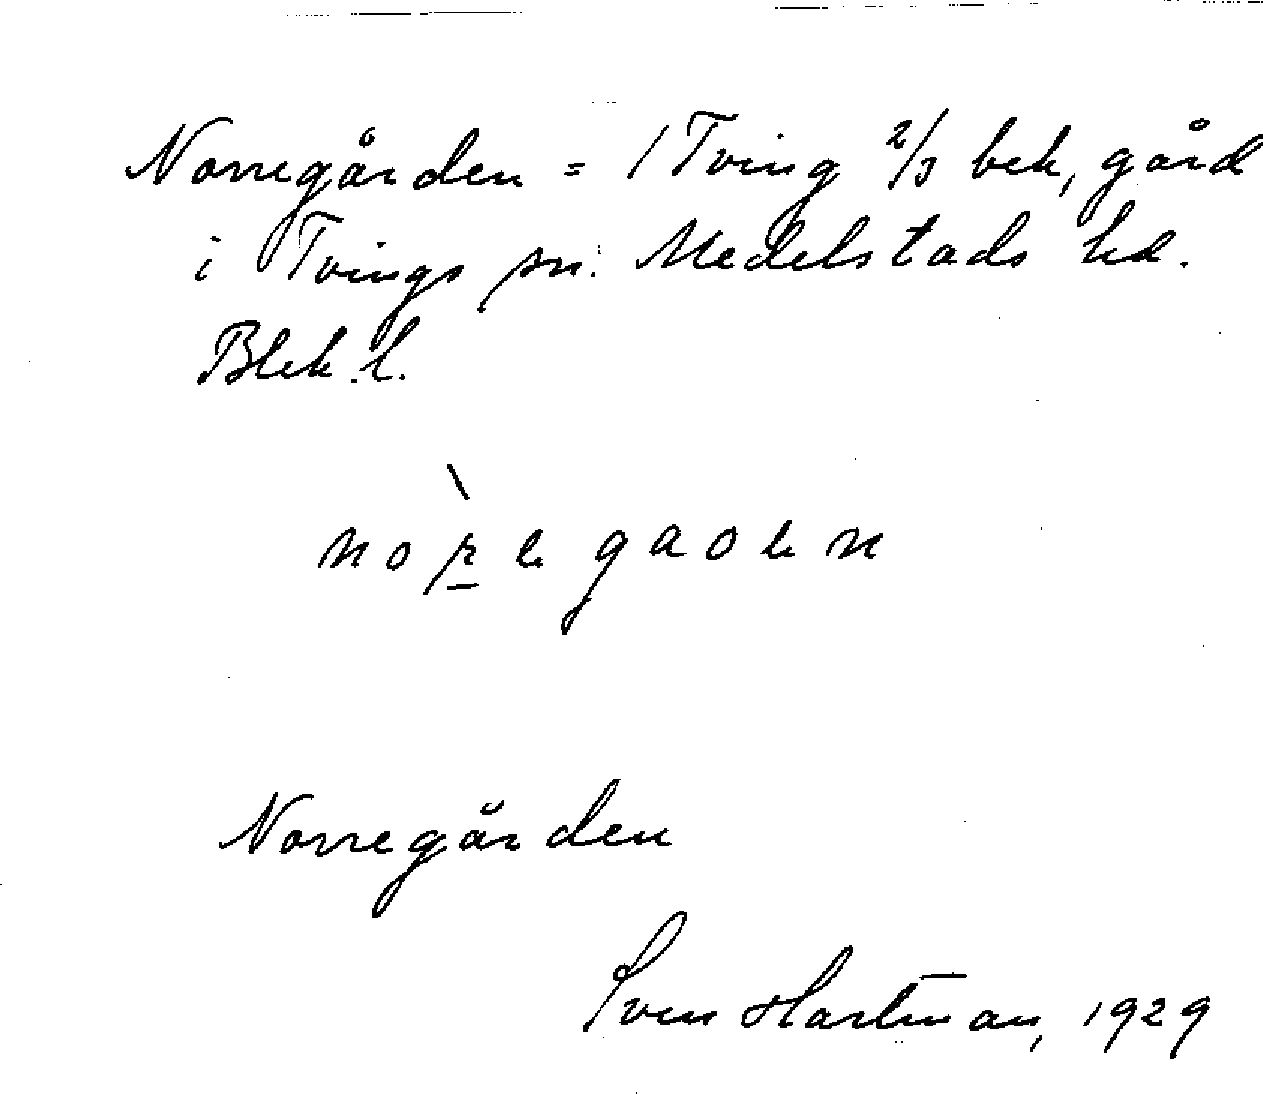 Norregården = 1 Tving 2/3 bek, gård
i Tvings sn. Medelstads hd.
Blek. l.
Norregården
Sven Hartman, 1929